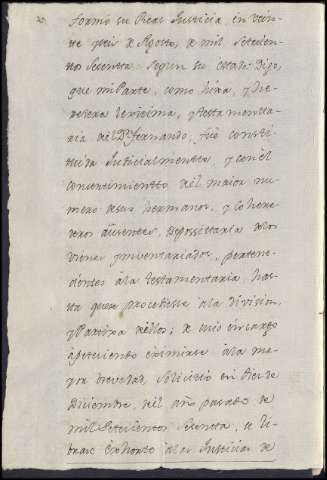 formó su Real Justicia en vein-
te y seis de Agosto, de mil setecien-
tos sesenta. segun su estado: Digo,
que mi Parte, como hixa, y he-
redera lexitima, y testamenta-
ria del Dn. fernando, fue consti-
tuida Judicialmente, y con el
consentimientto del maior nu-
mero de sus hermanos, y cohere-
deros ausentes, Depossitaria de los
vienes ynventariados, pertene-
cientes à la testamentaria, has-
ta que se procediese à la division,
y Partixa de ellos; de cuio encargo
apeteciendo eximirse à la ma-
yor brevedad, solicitó en diez de
Diziembre, del año pasado de
mil setecientos sesenta, se li-
brase Exhorto à la Justicia de